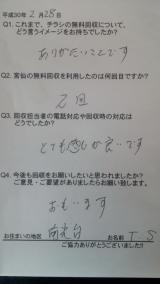 平成30年 2月 28日
Q1. これまで、チラシの無料回収について、
どう言うイメージをお持ちでしたか?
ありがたいことです
Q2. 宮仙の無料回収を利用したのは何回目ですか?
2回
Q3. 回収担当者の電話対応や回収時の対応は
どうでしたか?
とても感じが良いです
Q4. 今後も回収をお願いしたいと思われましたか?
ご意見・ご要望がありましたらお願い致します。
おもいます
お住まいの地区 南光台 お名前 T S
ご協力ありがとうございました!!